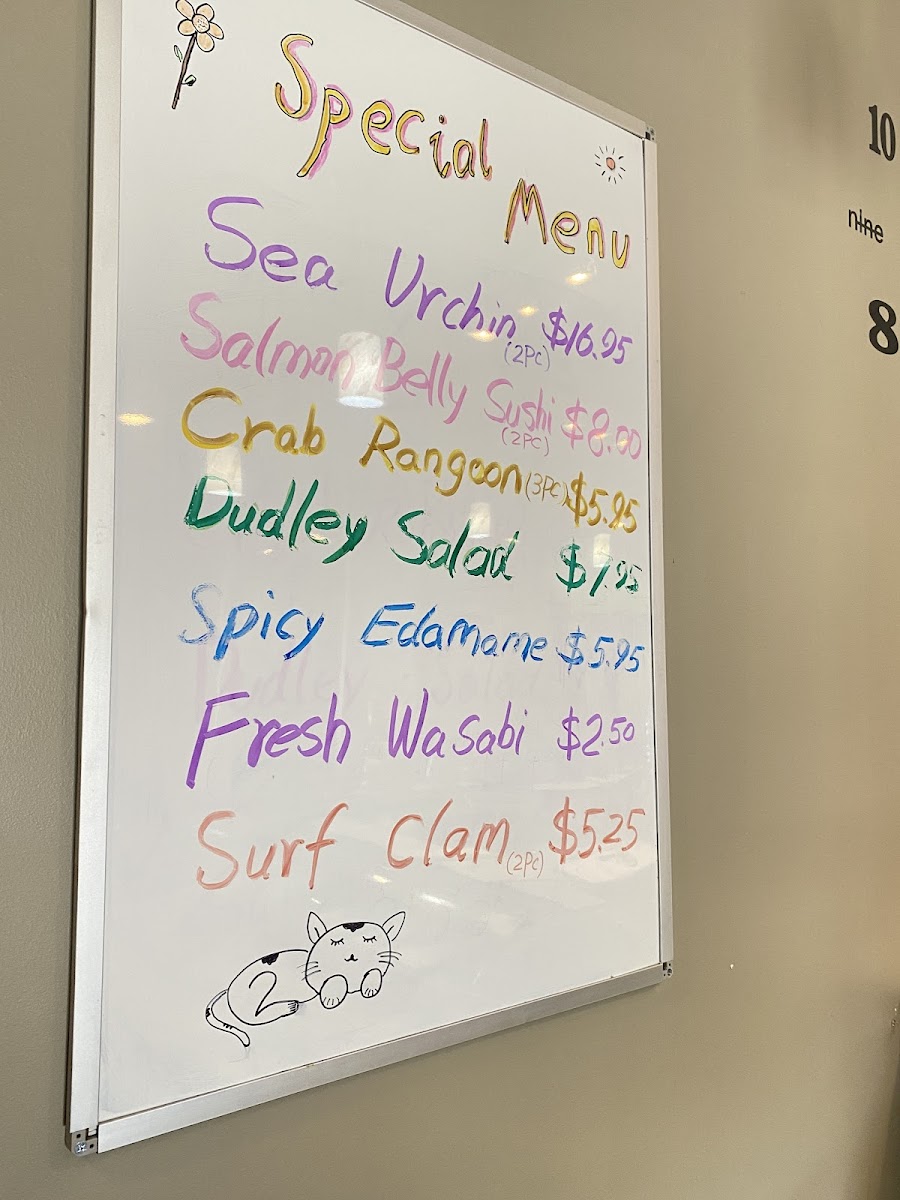 Special
Menu
Sea Urchin (2Pc) $16.95
Salmon Belly Sushi (2Pc) $8.00
Crab Rangoon (3Pc) $5.95
Dudley Salad $7.95
Spicy Edamame $5.95
Fresh Wasabi $2.50
Surf Clam (2Pc) $5.25
2
10
nine
8